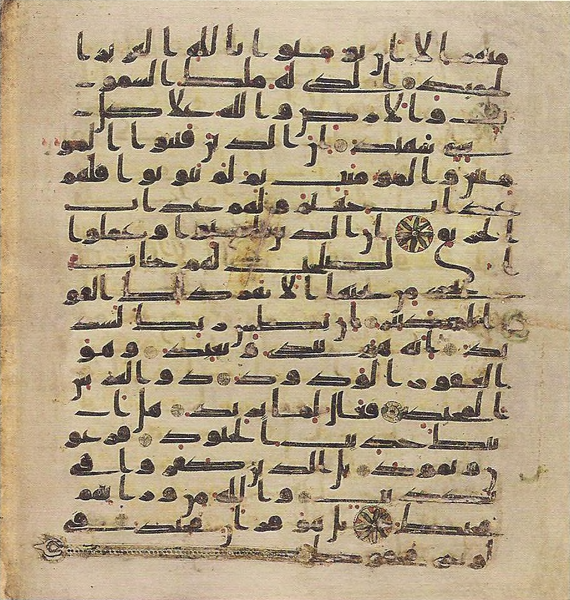 منهم الا ان يومنوا بالله العزيز ا
لحميد الذي له ملك السمو
ت والارض والله على كل
شي شهيد ان الذين فتنوا المو
منين والمومنت ثم لم يتوبوا فلهم
عذاب جهنم ولهم عذاب
الحريق ان الذين امنوا وعملوا
ا لصلحت لهم جنت
تجري من تحتها الانهر ذلك الفو
ز الكبير ان بطش ربك لشد
يد انه هو يبدي ويعيد وهو
الغفور الودود ذو العرش
المجيد فعال لما يريد هل ات
يك حديث الجنود فرعو
ن وثمود بل الذين كفروا في
تكذيب والله من ورايهم
محيط بل هو قرن مجيد في
لوح محفوظ